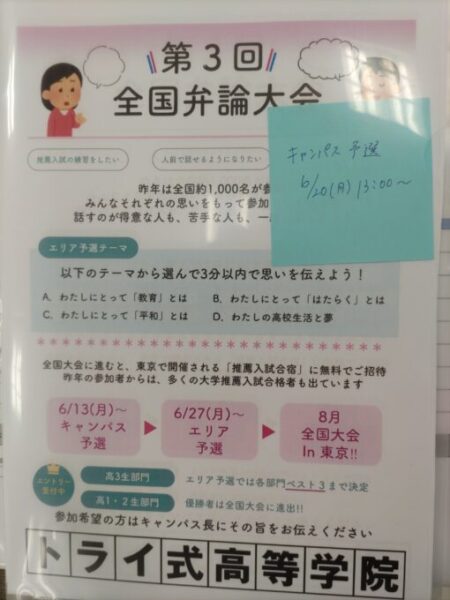 第3回
全国弁論大会
キャンパス予選
6/20(月) 13:00～
推薦入試の練習をしたい
人前で話せるようになりたい
昨年は全国約1,000名が参
みんなそれぞれの思いをもって参加
話すのが得意な人も、苦手な人も、一
エリア予選テーマ
以下のテーマから選んで3分以内で思いを伝えよう！
A. わたしにとって「教育」とは
B. わたしにとって「はたらく」とは
C. わたしにとって「平和」とは
D. わたしの高校生活と夢
全国大会に進むと、東京で開催される「推薦入試合宿」に無料でご招待
昨年の参加者からは、多くの大学推薦入試合格者も出ています
6/13(月)～
キャンパス
予選
6/27(月)～
エリア
予選
8月
全国大会
In 東京!!
エントリー
受付中
高3生部門
高1・2生部門
エリア予選では各部門ベスト3まで決定
優勝者は全国大会に進出!!
参加希望の方はキャンパス長にその旨をお伝えください
トライ式高等学院